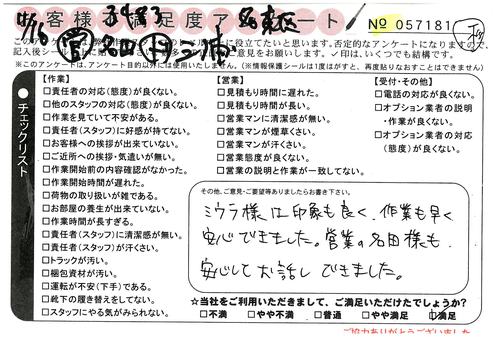 お客様満足度アンケート
№ 057181
に役立てたいと思います。否定的なアンケートになりますので、
ご意見をお願いします。✓印は、いくつでも結構です。
※このアンケートは、アンケート目的以外には使用いたしません。(※情報保護シールは1度はがすと、再度貼りなおすことはできません)
チェックリスト
【作業】
□責任者の対応(態度)が良くない。
□他のスタッフの対応(態度)が良くない。
□作業を見ていて不安がある。
□責任者(スタッフ)に好感が持てない。
□お客様への挨拶が出来ていない。
□ご近所への挨拶・気遣いが無い。
□作業開始前の内容確認がなかった。
□作業開始時間が遅れた。
□荷物の取り扱いが雑である。
□お部屋の養生が出来ていない。
□作業時間が長すぎる。
□責任者(スタッフ)に清潔感が無い。
□責任者(スタッフ)が汗くさい。
□トラックが汚い。
□梱包資材が汚い。
□運転が不安(下手)である。
□靴下の履き替えをしてない。
□スタッフにやる気がみられない。
【営業】
□見積もり時間に遅れた。
□見積もり時間が長い。
□営業マンに清潔感が無い。
□営業マンが煙草くさい。
□営業マンが汗くさい。
□営業態度が良くない。
□営業の説明と作業が一致してない。
【受付・その他】
□電話の対応が良くない。
□オプション業者の説明
・作業が良くない。
□オプション業者の対応
(態度)が良くない。
その他、ご意見・ご要望等ありましたらお書き下さい。
ミウラ様は印象も良く、作業も早く
安心できました。営業の名田様も、
安心してお話しできました。
☆当社をご利用いただきまして、ご満足いただけたでしょうか?
□不満 □やや不満 □普通 □やや満足 ☑満足
ご協力ありがとうございました